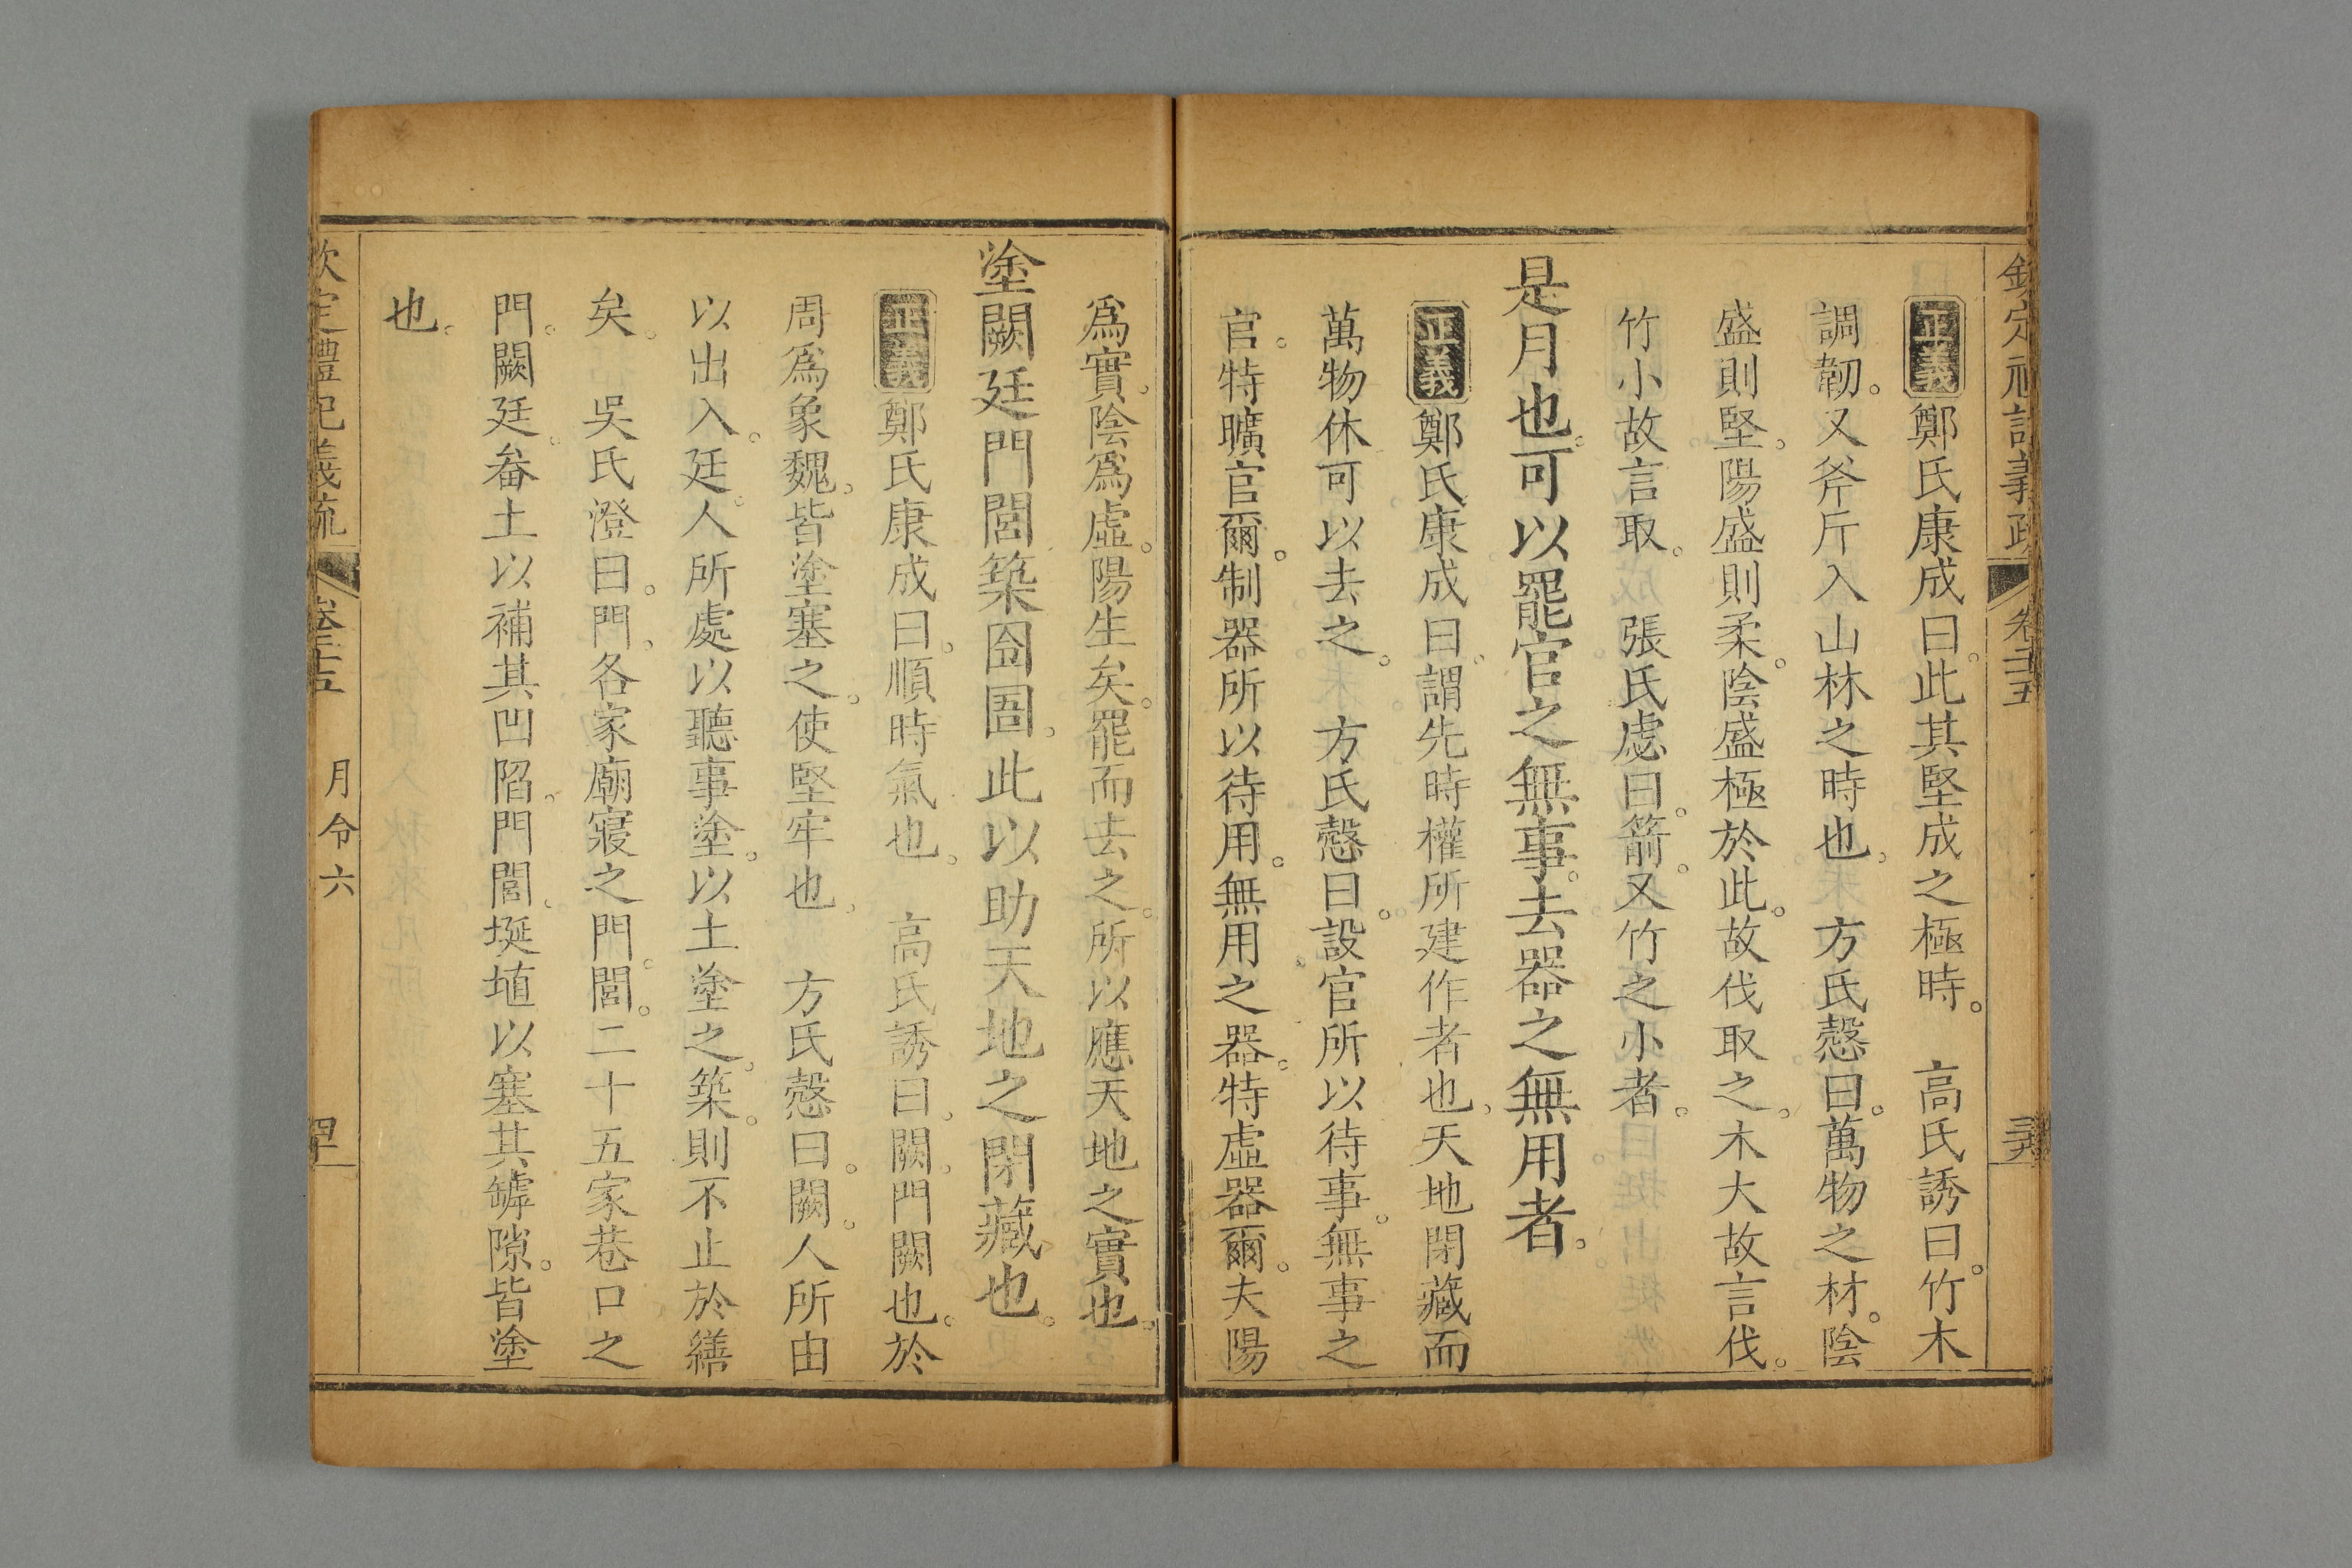 欽定禮記義疏 卷二十五
正義鄭氏康成曰。此其堅成之極時。 高氏誘曰。竹木
調韌。又斧斤入山林之時也。 方氏慤曰。萬物之材。陰
盛則堅。陽盛則柔。陰盛極於此。故伐取之。木大故言伐。
竹小故言取。 張氏虙曰。箭。又竹之小者。
是月也。可以罷官之無事。去器之無用者。
正義鄭氏康成曰。謂先時權所建作者也。天地閉藏而
萬物休可以去之。 方氏慤曰。設官所以待事。無事之
官。特曠官爾。制器所以待用。無用之器。特虛器爾。夫陽
爲實。陰爲虛。陽生矣。罷而去之。所以應天地之實也。
塗闕廷門閭築囹圄。此以助天地之閉藏也。
正義鄭氏康成曰。順時氣也。 高氏誘曰。闕。門闕也。於
周爲象魏。皆塗塞之。使堅牢也。 方氏慤曰。闕。人所由
以出入。廷。人所處以聽事。塗。以土塗之。築。則不止於繕
矣。 吳氏澄曰。門。各家廟寢之門。閭。二十五家巷口之
門。闕廷。畚土以補其凹陷。門閭。埏埴以塞其罅隙。皆塗
也。
欽定禮記義疏 卷二十五 月令六